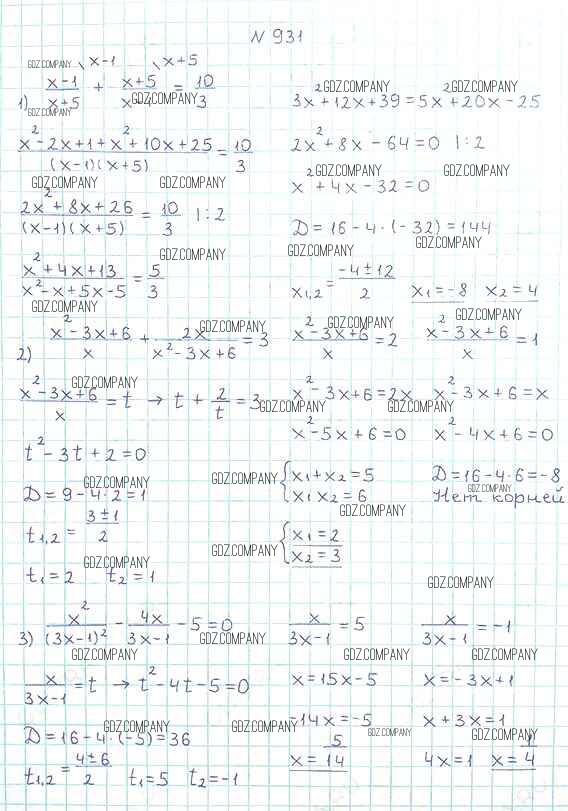 N 931
1) (x-1)/(x+5) \x-1 + (x+5)/(x-1) \x+5 = 10/3
(x²-2x+1+x²+10x+25)/((x-1)(x+5)) = 10/3
(2x²+8x+26)/((x-1)(x+5)) = 10/3 |:2
(x²+4x+13)/(x²-x+5x-5) = 5/3
3x²+12x+39=5x²+20x-25
2x²+8x-64=0 |:2
x²+4x-32=0
D=16-4·(-32)=144
x1,2 = (-4±12)/2 x1=-8 x2=4
2) (x²-3x+6)/x + 2x/(x²-3x+6) = 3
(x²-3x+6)/x = t → t + 2/t = 3
t²-3t+2=0
D=9-4·2=1
t1,2 = (3±1)/2
t1=2 t2=1
(x²-3x+6)/x = 2 (x²-3x+6)/x = 1
x²-3x+6=2x x²-3x+6=x
x²-5x+6=0 x²-4x+6=0
{x1+x2=5 D=16-4·6=-8
x1x2=6 Нет корней
{x1=2
x2=3
3) x²/(3x-1)² - 4x/(3x-1) - 5=0
x/(3x-1) = t → t²-4t-5=0
D=16-4·(-5)=36
t1,2 = (4±6)/2 t1=5 t2=-1
x/(3x-1) = 5 x/(3x-1) = -1
x=15x-5 x=-3x+1
-14x=-5 x+3x=1
x=5/14 4x=1 x=1/4
GDZ.COMPANY